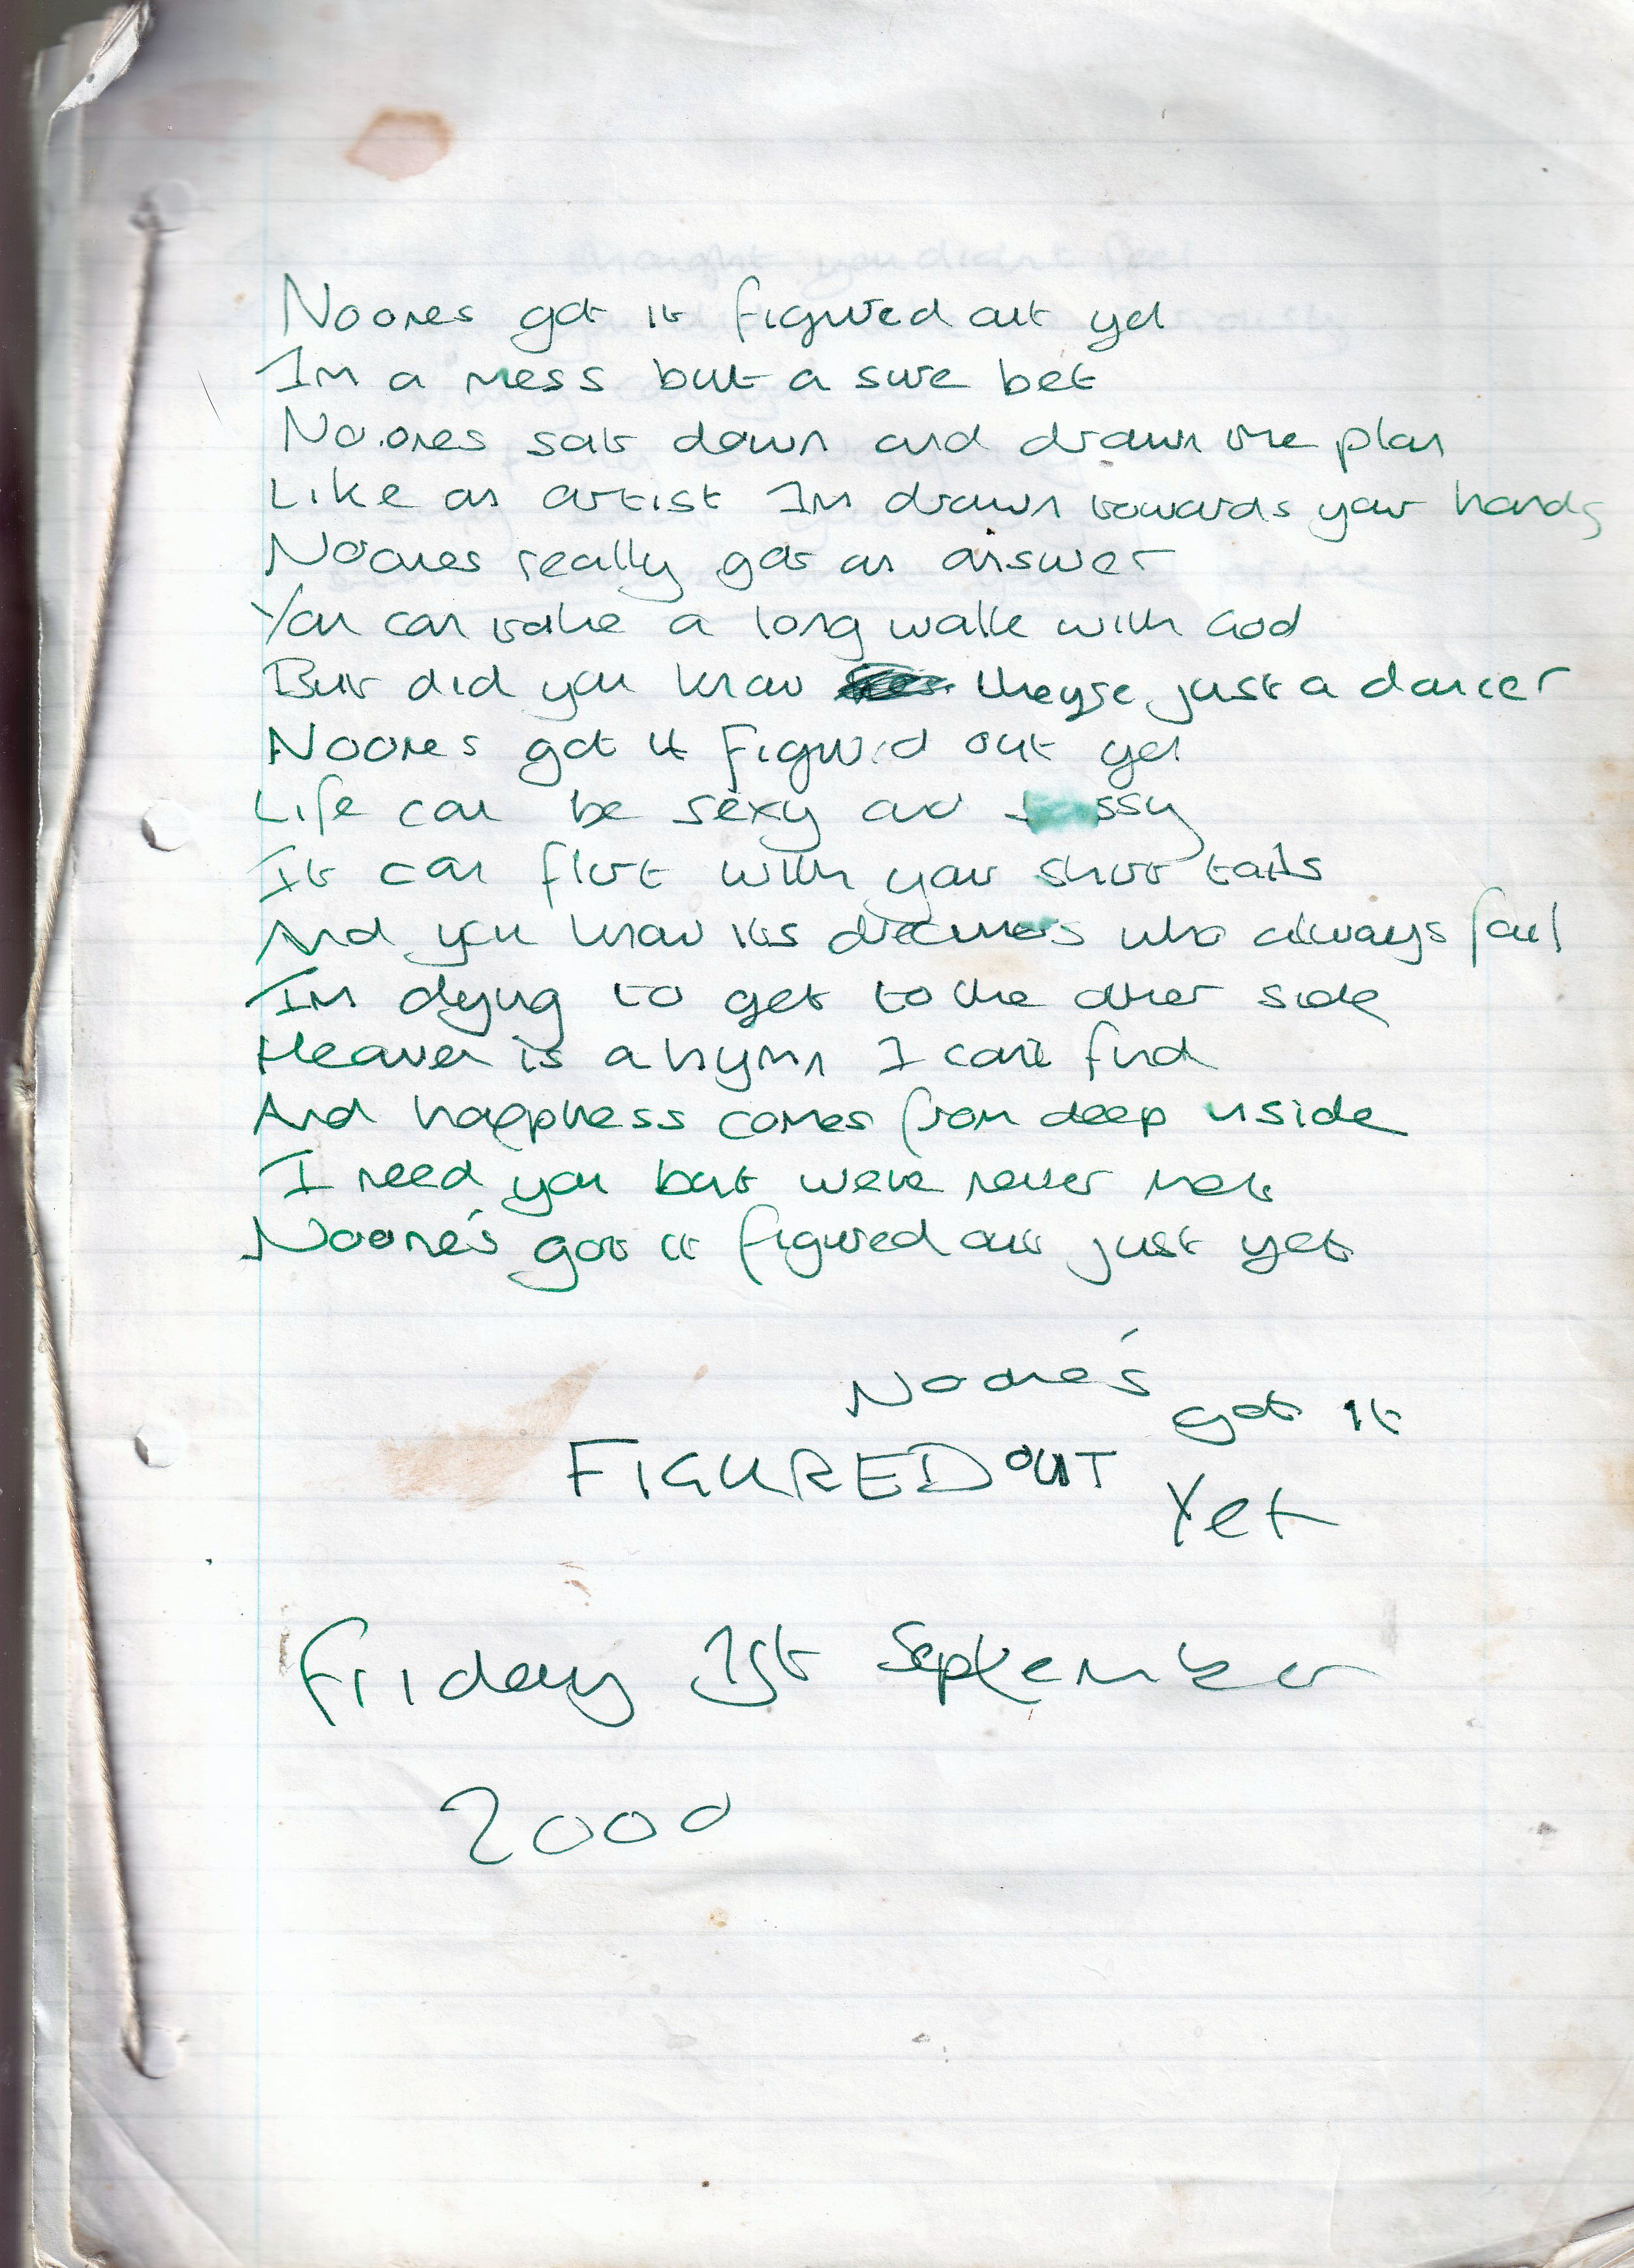 Noones got it figured out yet
Im a mess but a sure bet
No ones sat down and drawn the plan
Like an artist Im drawn towards your hands
Noones really got an answer
You can take a long walk with God
But did you know they're just a dancer
Noones got it figured out yet
Life can be sexy and
It can flirt with your shirt tails
And you know its dreamers who always fail
Im dying to get to the other side
Heaven is a hymn I cant find
And happiness comes from deep inside
I need you but weve never met
Noone's got it figured out just yet
Noone's
got it
FIGURED OUT
Yet
Friday 1st September
2000